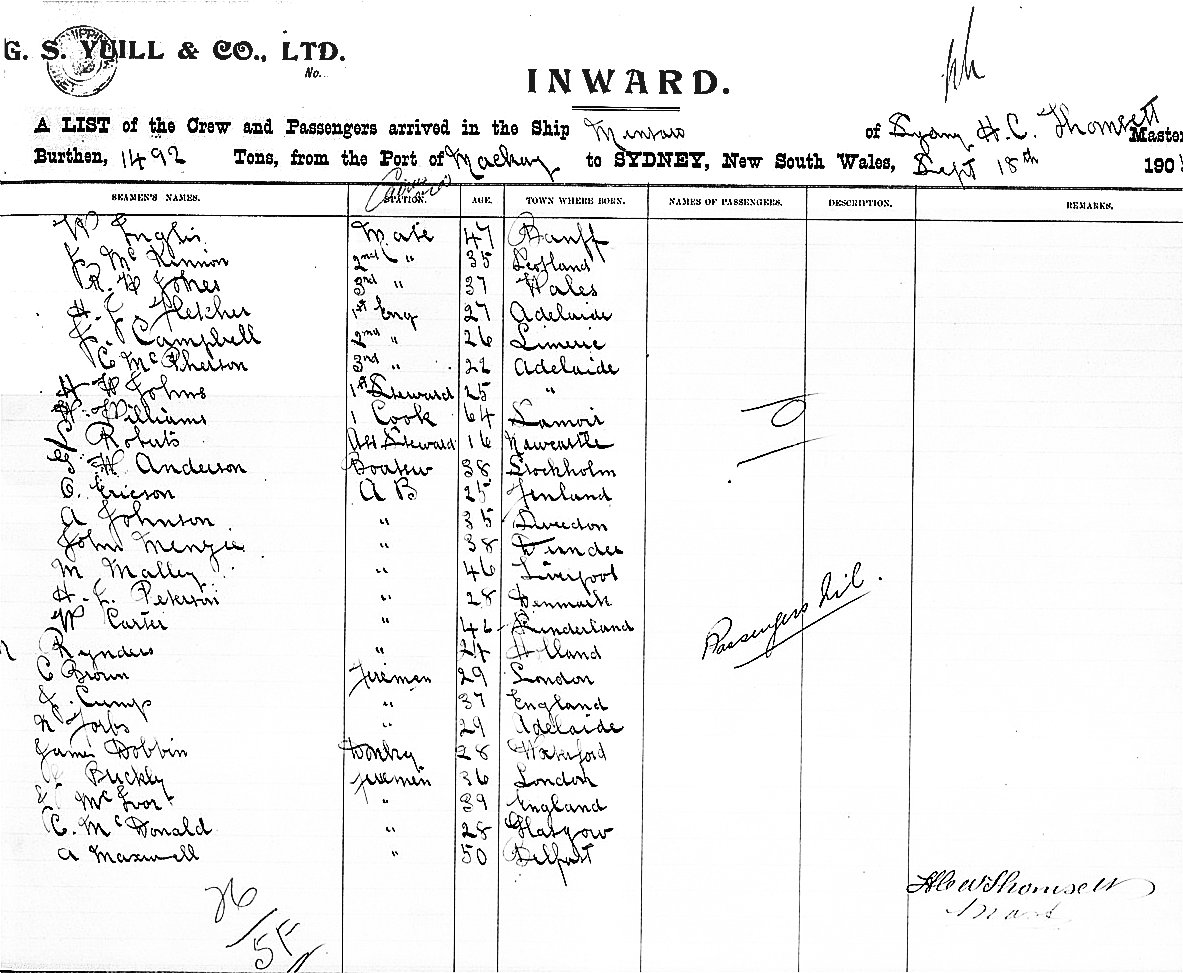 G. S. YUILL & CO., LTD.
No.
INWARD.
A LIST of the Crew and Passengers arrived in the Ship of H. C. Thomsett Master
Burthen, 1492 Tons, from the Port of Mackay to SYDNEY, New South Wales, Sept 18th 190
SEAMEN'S NAMES. STATION. AGE. TOWN WHERE BORN. NAMES OF PASSENGERS. DESCRIPTION. REMARKS.
W Inglis Mate 47 Banff
McKinnon 2nd " 35 Scotland
R. H Jones 3rd " 37 Wales
H. Fletcher 1st Eng 27 Adelaide
Campbell 2nd " 26 Limeric
C McPherson 3rd " 22 Adelaide
H Johns 1st Steward 25 "
Williams 1 Cook 64
Roberts Ast Steward 16 Newcastle
H Anderson Boatsw 38 Stockholm
C. Ericson A B 25 Finland
A Johnson " 35 Sweedon
John Menzie " 38 Dundee
M Malley " 46 Liverpool
H. Peterson " 28 Denmark
W Carter " Sunderland
Rynders " 24 Holland
C Brown Firemen 29 London
" 37 England
" 29 Adelaide
James Dobbin Donkey 28 Waterford
Buckly firemen 36 London
McIvor " 39 England
C. McDonald " 28 Glasgow
A Maxwell " 50 Belfast
Passengers Nil.
Thomsett
26
55